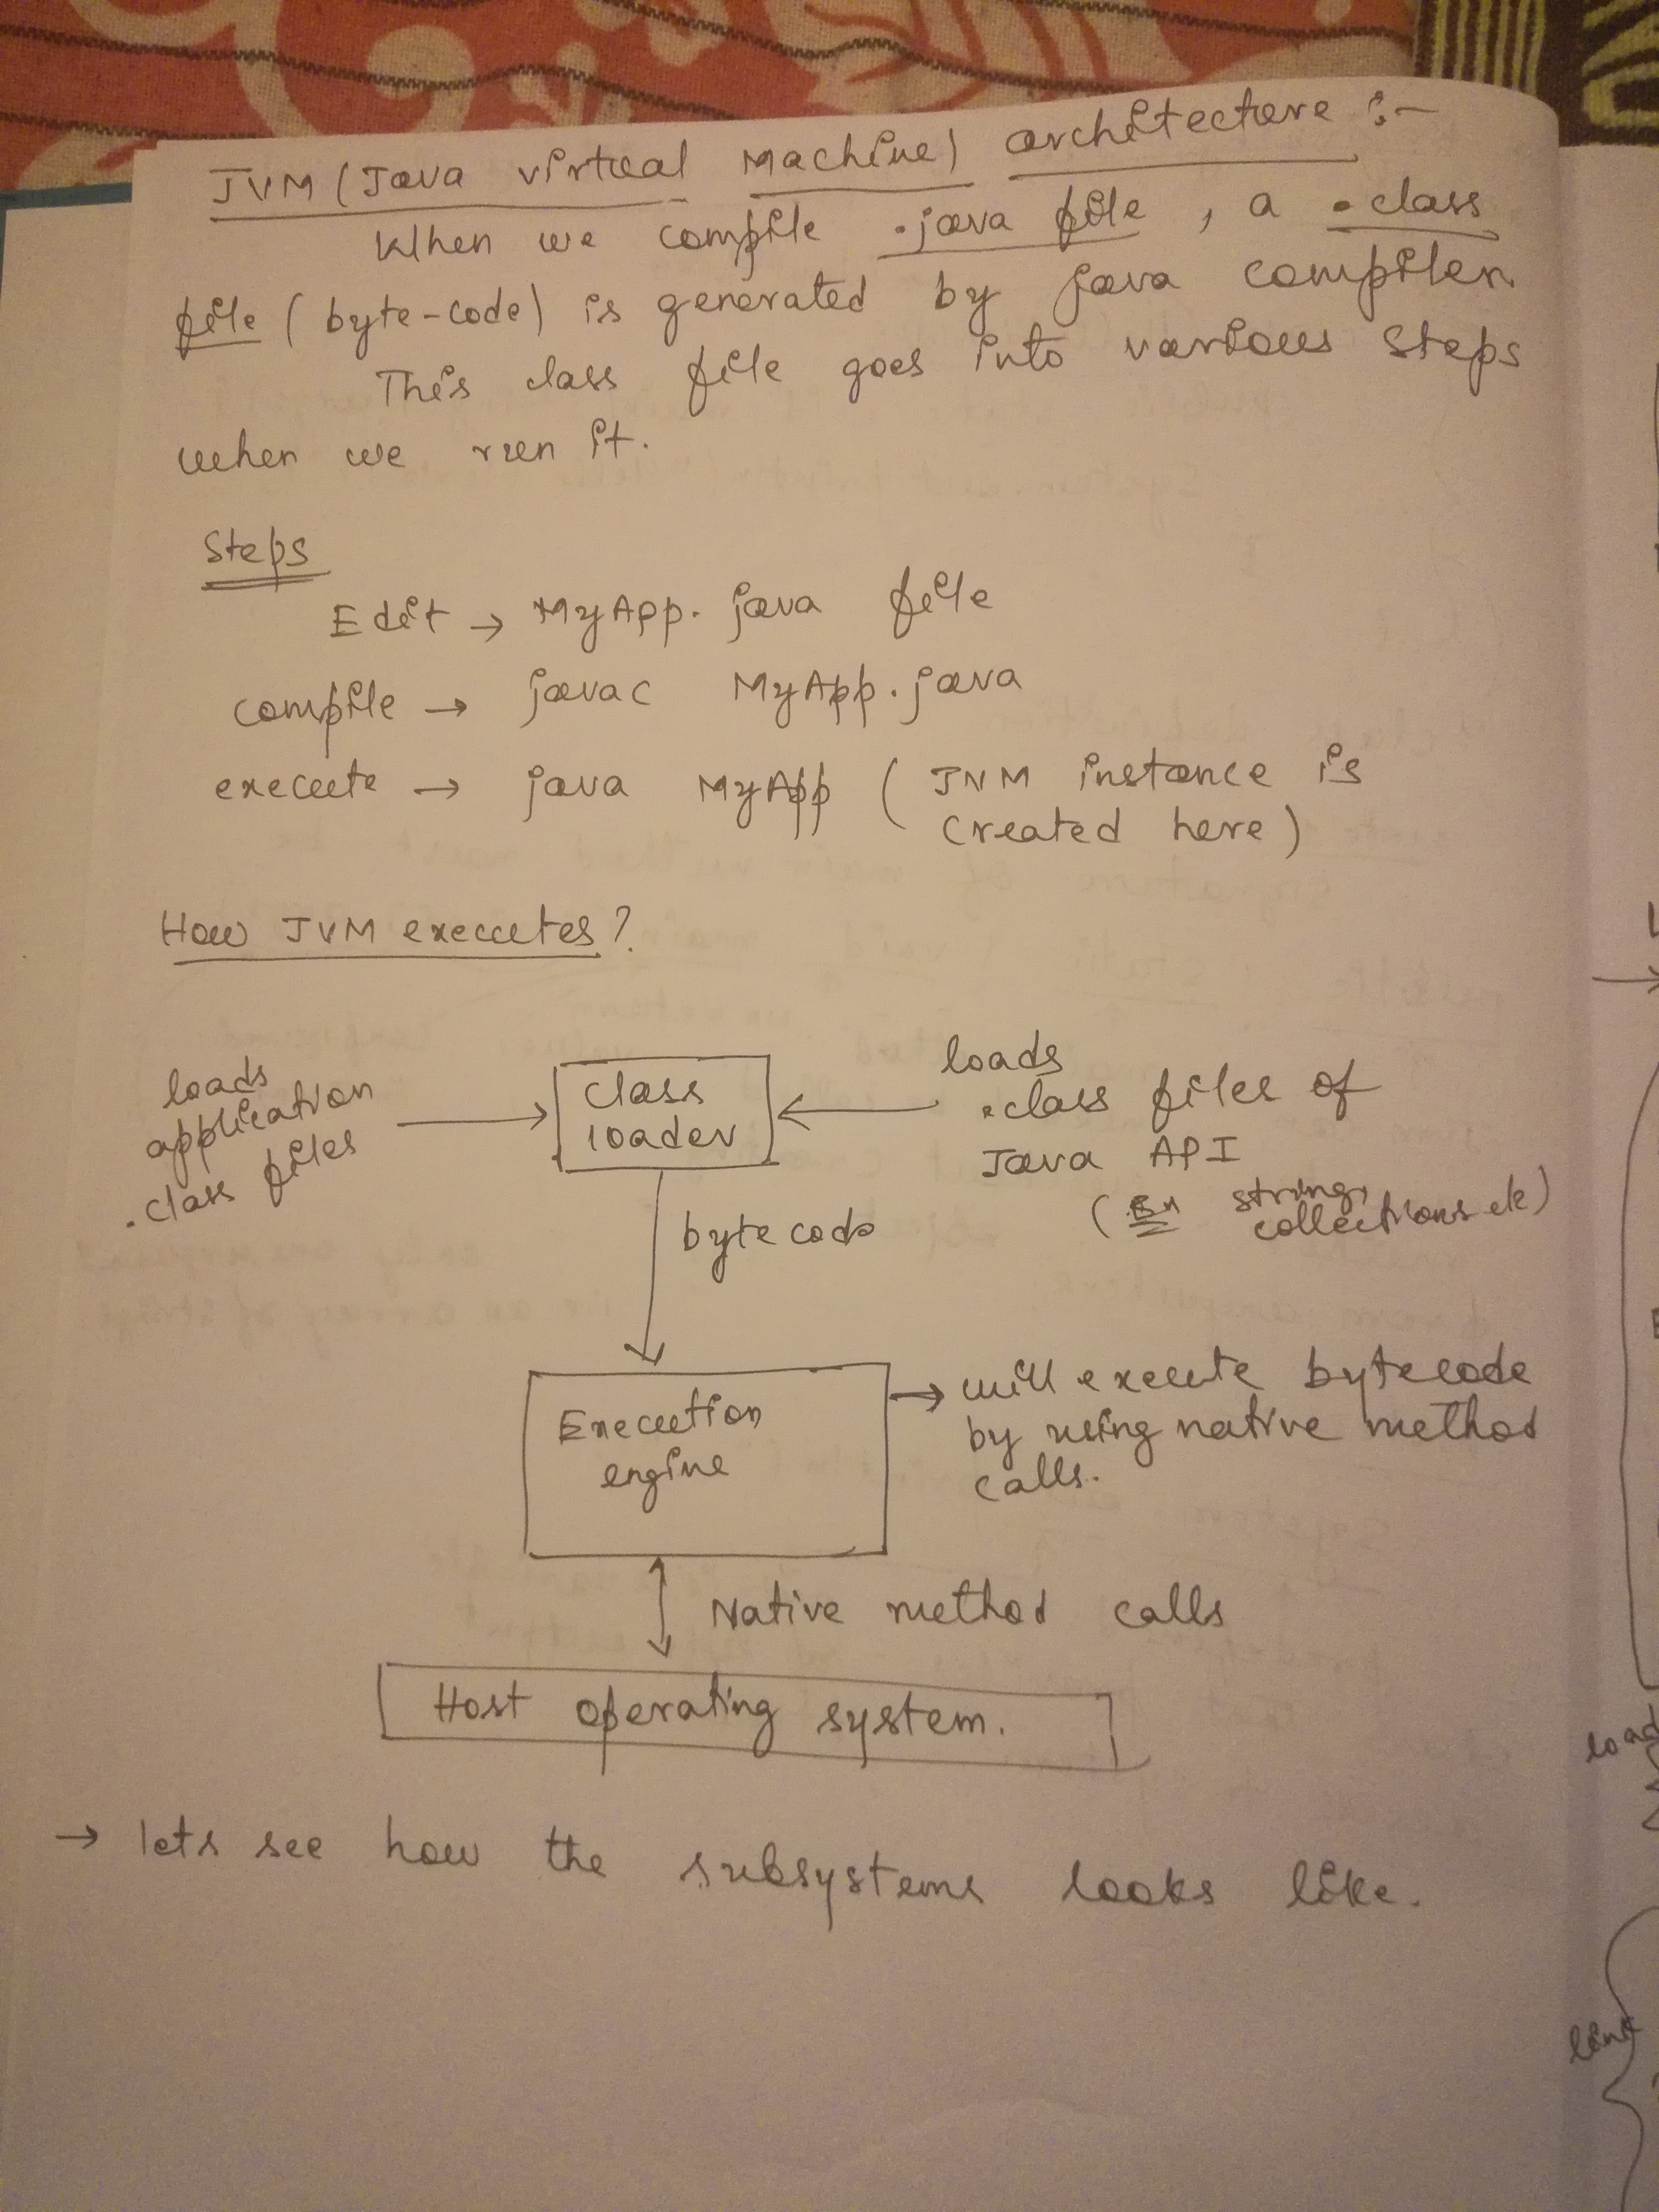 JVM (Java virtual Machine) architecture :-
When we compile .java file , a .class
file ( byte-code) is generated by java compiler.
This class file goes into various steps
when we run it.
Steps
Edit → MyApp. java file
compile → javac MyApp.java
execute → java MyApp ( JVM instance is
created here )
How JVM executes?
loads
application
.class files
class
loader
loads
.class files of
Java API
( Ex string,
collections etc)
byte code
Execution
engine
→ will execute bytecode
by using native method
calls.
Native method calls
Host operating system.
→ lets see how the subsystems looks like.
load